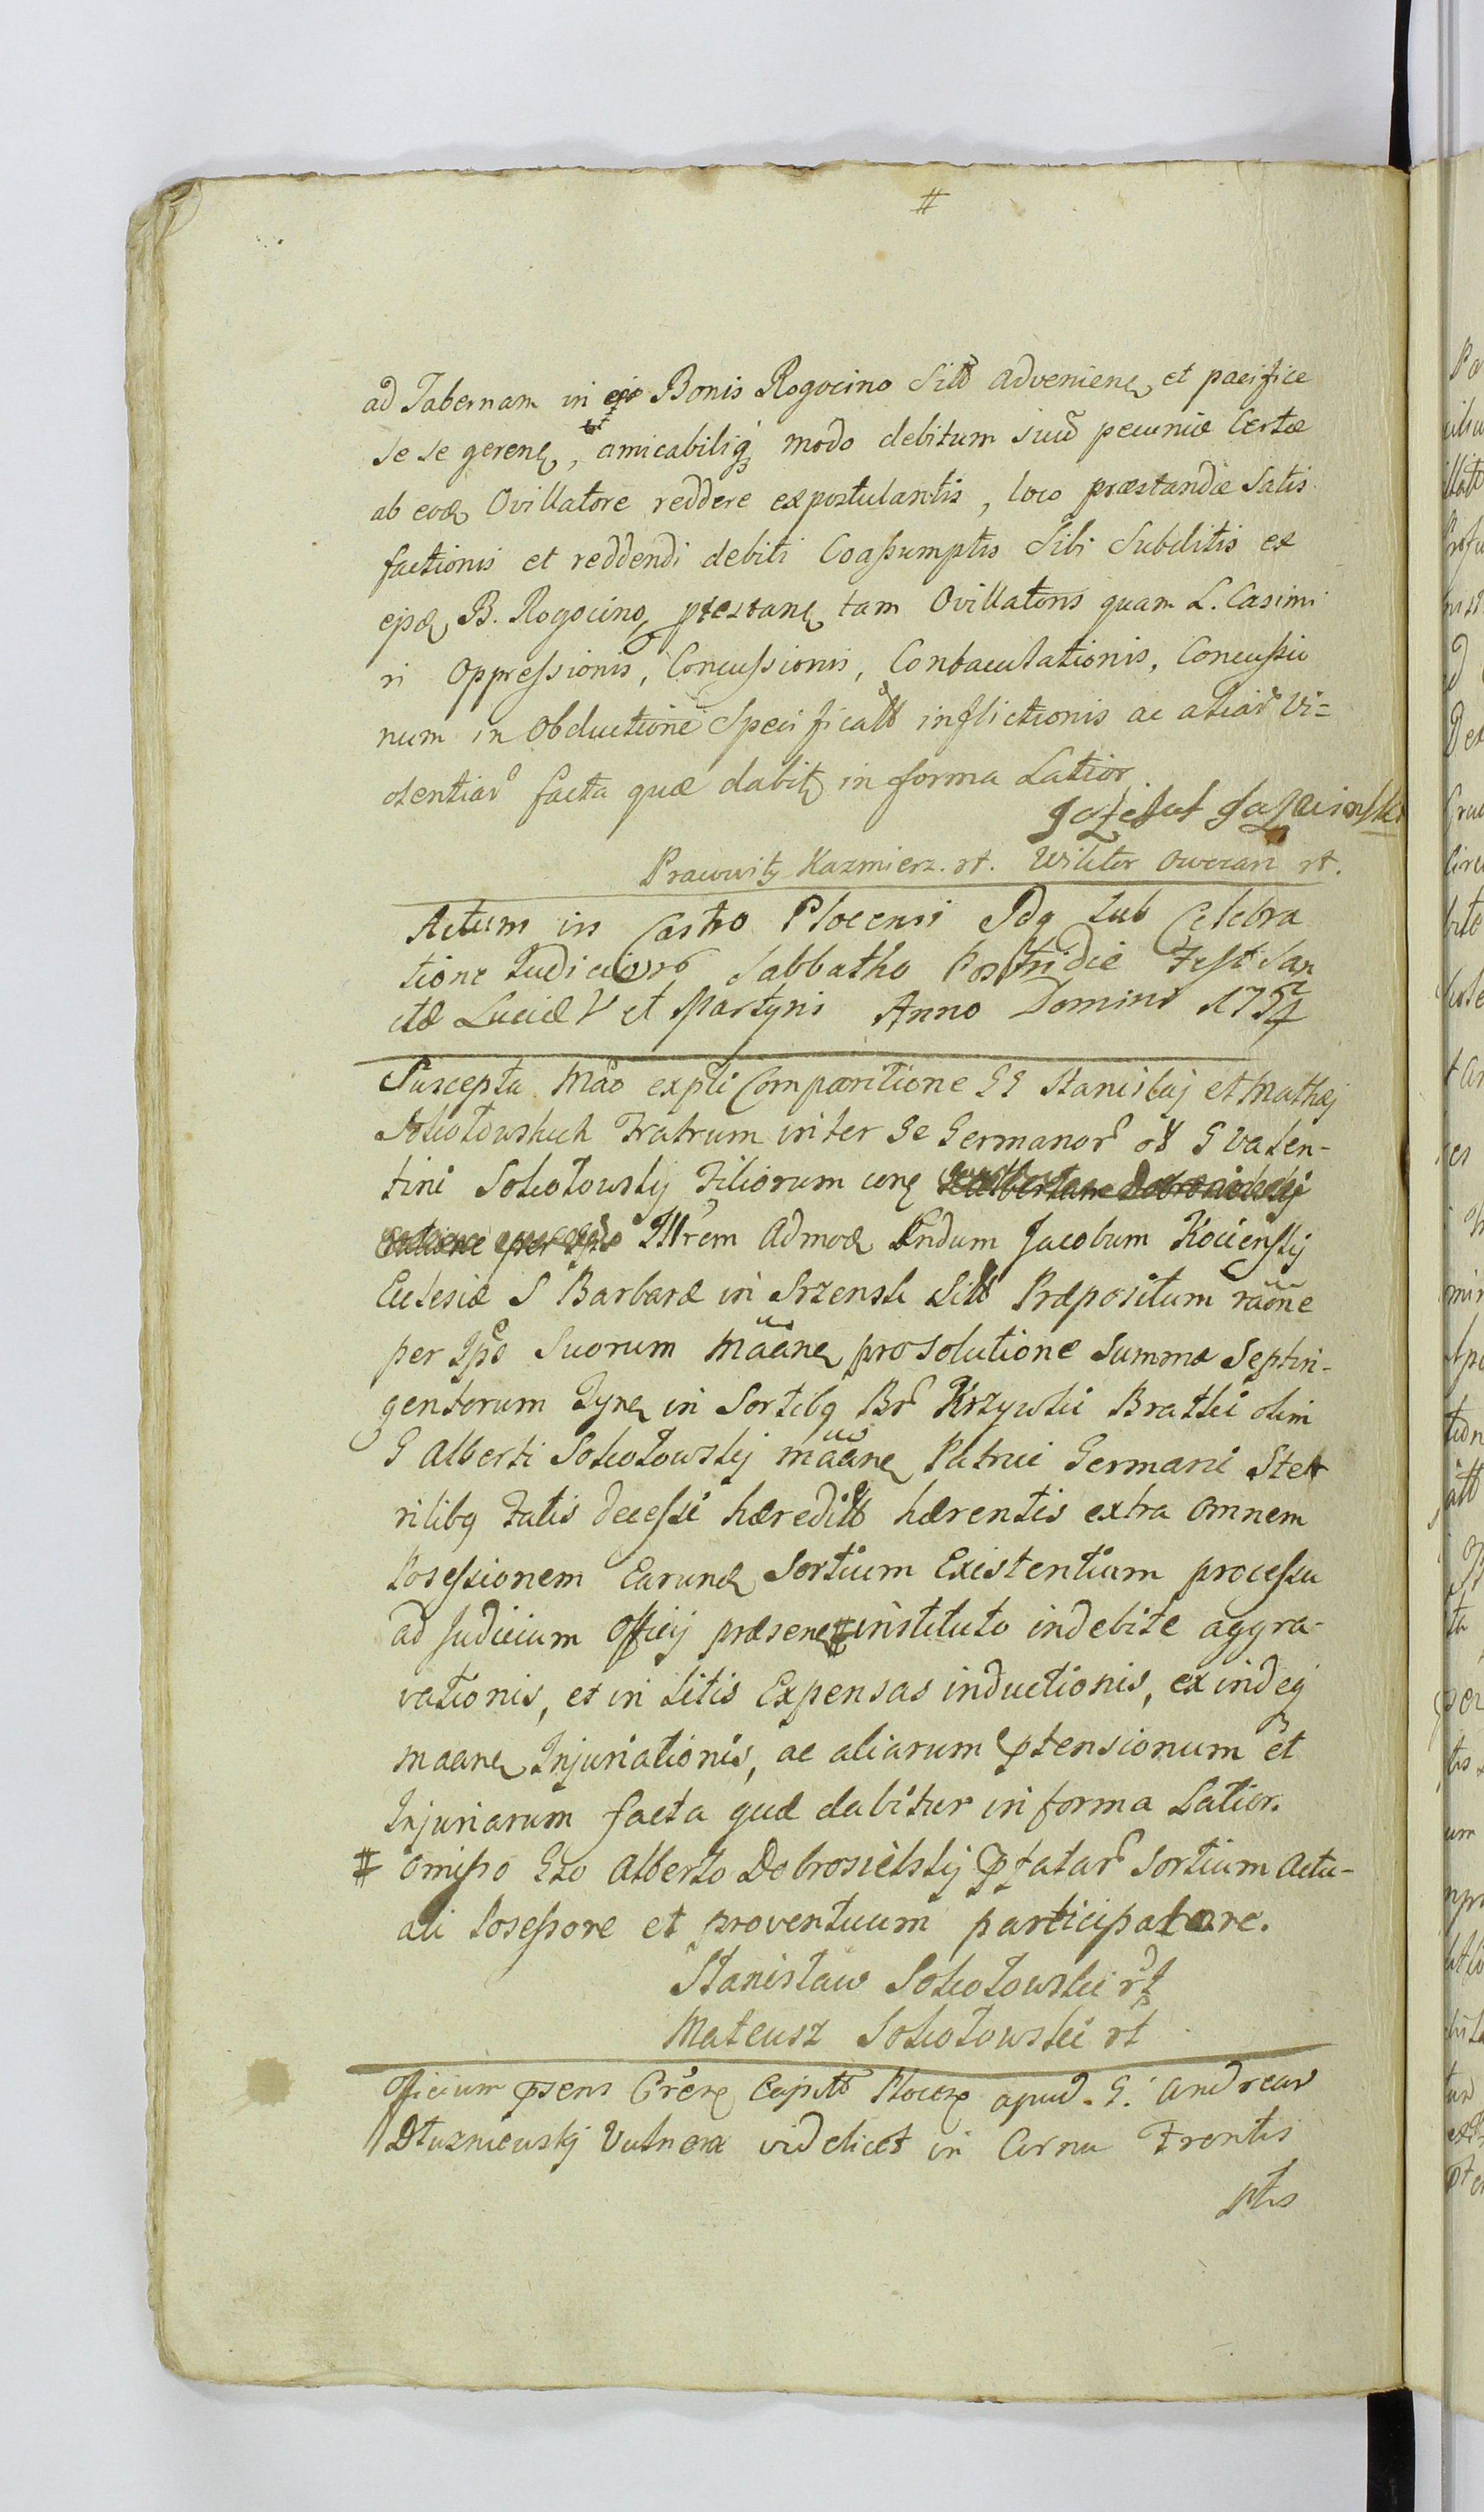 #
ad Tabernam in Bonis Rogocino Sitt adveniens et pacifice
se se gerens, et amicabiliq modo debitum suū pecuniæ Certæ
ab eod Ovillatore reddere expostulantis, loco præstandæ Satis
factionis et reddendi debiti Coassumptis Sibi Subditis ex
ejsd B. Rogocino, tam Ovillatoris quam L. Casimi
ri Oppressionis, Concussionis, Conbaculationis, Concussio
num in Obductione Specificatt inflictionis ac aliar Vi=
olentiar facta quæ dabit in forma Latior.
Prawwitz Kazmierz. rt. Wiktor Owczarz rt.
Actum in Castro Plocensi Fdq sub Celebra
tione Judiciorō Sabbatho Postridie Festi San
ctæ Luciæ V et Martyris Anno Domini 1754
Suscepta Māō expti Comparitione GG Stanislaj et Mathæj
Sokołowskich Fratrum inter Se Germanor ol G Valen-
tini Sokołowskij Filiorum conq
Illrem Admod Rndum Jacobum Kocienskij
Ecclesiæ S Barbaræ in Srzensk Sitt Præpositum rāōne
per Ipso Suorum Māāne prosolutione Summæ Septin-
gentorum Tynq in Sortibq Br Krzywki Bratki olim
G Alberti Sokołowskij māāne Patrui Germani Ste
rilibq Fatis decessi hæreditt hærentis extra omnem
Posessionem Earund Sortium Existentium processu
ad Judicium Officij præsens # instituto indebite aggra-
vationis, et in Litis Expensas inductionis, exindeq
maane Injuriationis, ac aliarum ptensionum et
Injuriarum facta quæ dabitur in forma Latior.
# omisso Gso Alberto Dobrosielskij pfatar Sortium Actu-
ali Posessore et proventuum participatore.
Stanisław Sokołowski rt
Mateusz Sokołowski rt
Officium psens Crense Capitt Plocens apud. G. Andream
Dłuzniewskij Vulnera videlicet in Cornu Frontis
ptis